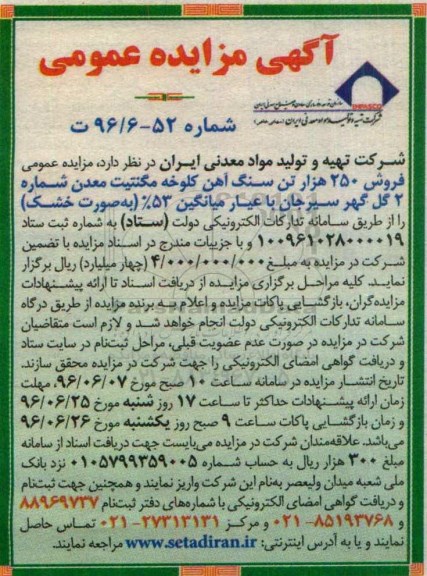 آگهی مزایده عمومی
IMPASCO
شرکت تهیه و تولید مواد معدنی ایران (سهامی خاص)
شماره ۵۲-۹۶/۶ ت
شرکت تهیه و تولید مواد معدنی ایران در نظر دارد، مزایده عمومی
فروش ۲۵۰ هزار تن سنگ آهن کلوخه مگنتیت معدن شماره
۲ گل گهر سیرجان با عیار میانگین ۵۳٪ (به‌صورت خشک)
را از طریق سامانه تدارکات الکترونیکی دولت (ستاد) به شماره ثبت ستاد
۱۰۰۹۶۱۰۲۸۰۰۰۰۱۹ و با جزییات مندرج در اسناد مزایده با تضمین
شرکت در مزایده به مبلغ ۴/۰۰۰/۰۰۰/۰۰۰ (چهار میلیارد) ریال برگزار
نماید. کلیه مراحل برگزاری مزایده از دریافت اسناد تا ارائه پیشنهادات
مزایده‌گران، بازگشایی پاکات مزایده و اعلام به برنده مزایده از طریق درگاه
سامانه تدارکات الکترونیکی دولت انجام خواهد شد و لازم است متقاضیان
شرکت در مزایده در صورت عدم عضویت قبلی، مراحل ثبت‌نام در سایت ستاد
و دریافت گواهی امضای الکترونیکی را جهت شرکت در مزایده محقق سازند.
تاریخ انتشار مزایده در سامانه ساعت ۱۰ صبح مورخ ۹۶/۰۶/۰۷، مهلت
زمان ارائه پیشنهادات حداکثر تا ساعت ۱۷ روز شنبه مورخ ۹۶/۰۶/۲۵
و زمان بازگشایی پاکات ساعت ۹ صبح روز یکشنبه مورخ ۹۶/۰۶/۲۶
می‌باشد. علاقه‌مندان شرکت در مزایده می‌بایست جهت دریافت اسناد از سامانه
مبلغ ۳۰۰ هزار ریال به حساب شماره ۰۱۰۵۷۹۹۳۵۹۰۰۵ نزد بانک
ملی شعبه میدان ولیعصر به‌نام این شرکت واریز نمایند و همچنین جهت ثبت‌نام
و دریافت گواهی امضای الکترونیکی با شماره‌های دفتر ثبت‌نام ۸۸۹۶۹۷۳۷
و ۸۵۱۹۳۷۶۸-۰۲۱ و مرکز ۲۷۳۱۳۱۳۱-۰۲۱ تماس حاصل
نمایند و یا به آدرس اینترنتی: www.setadiran.ir مراجعه نمایند.